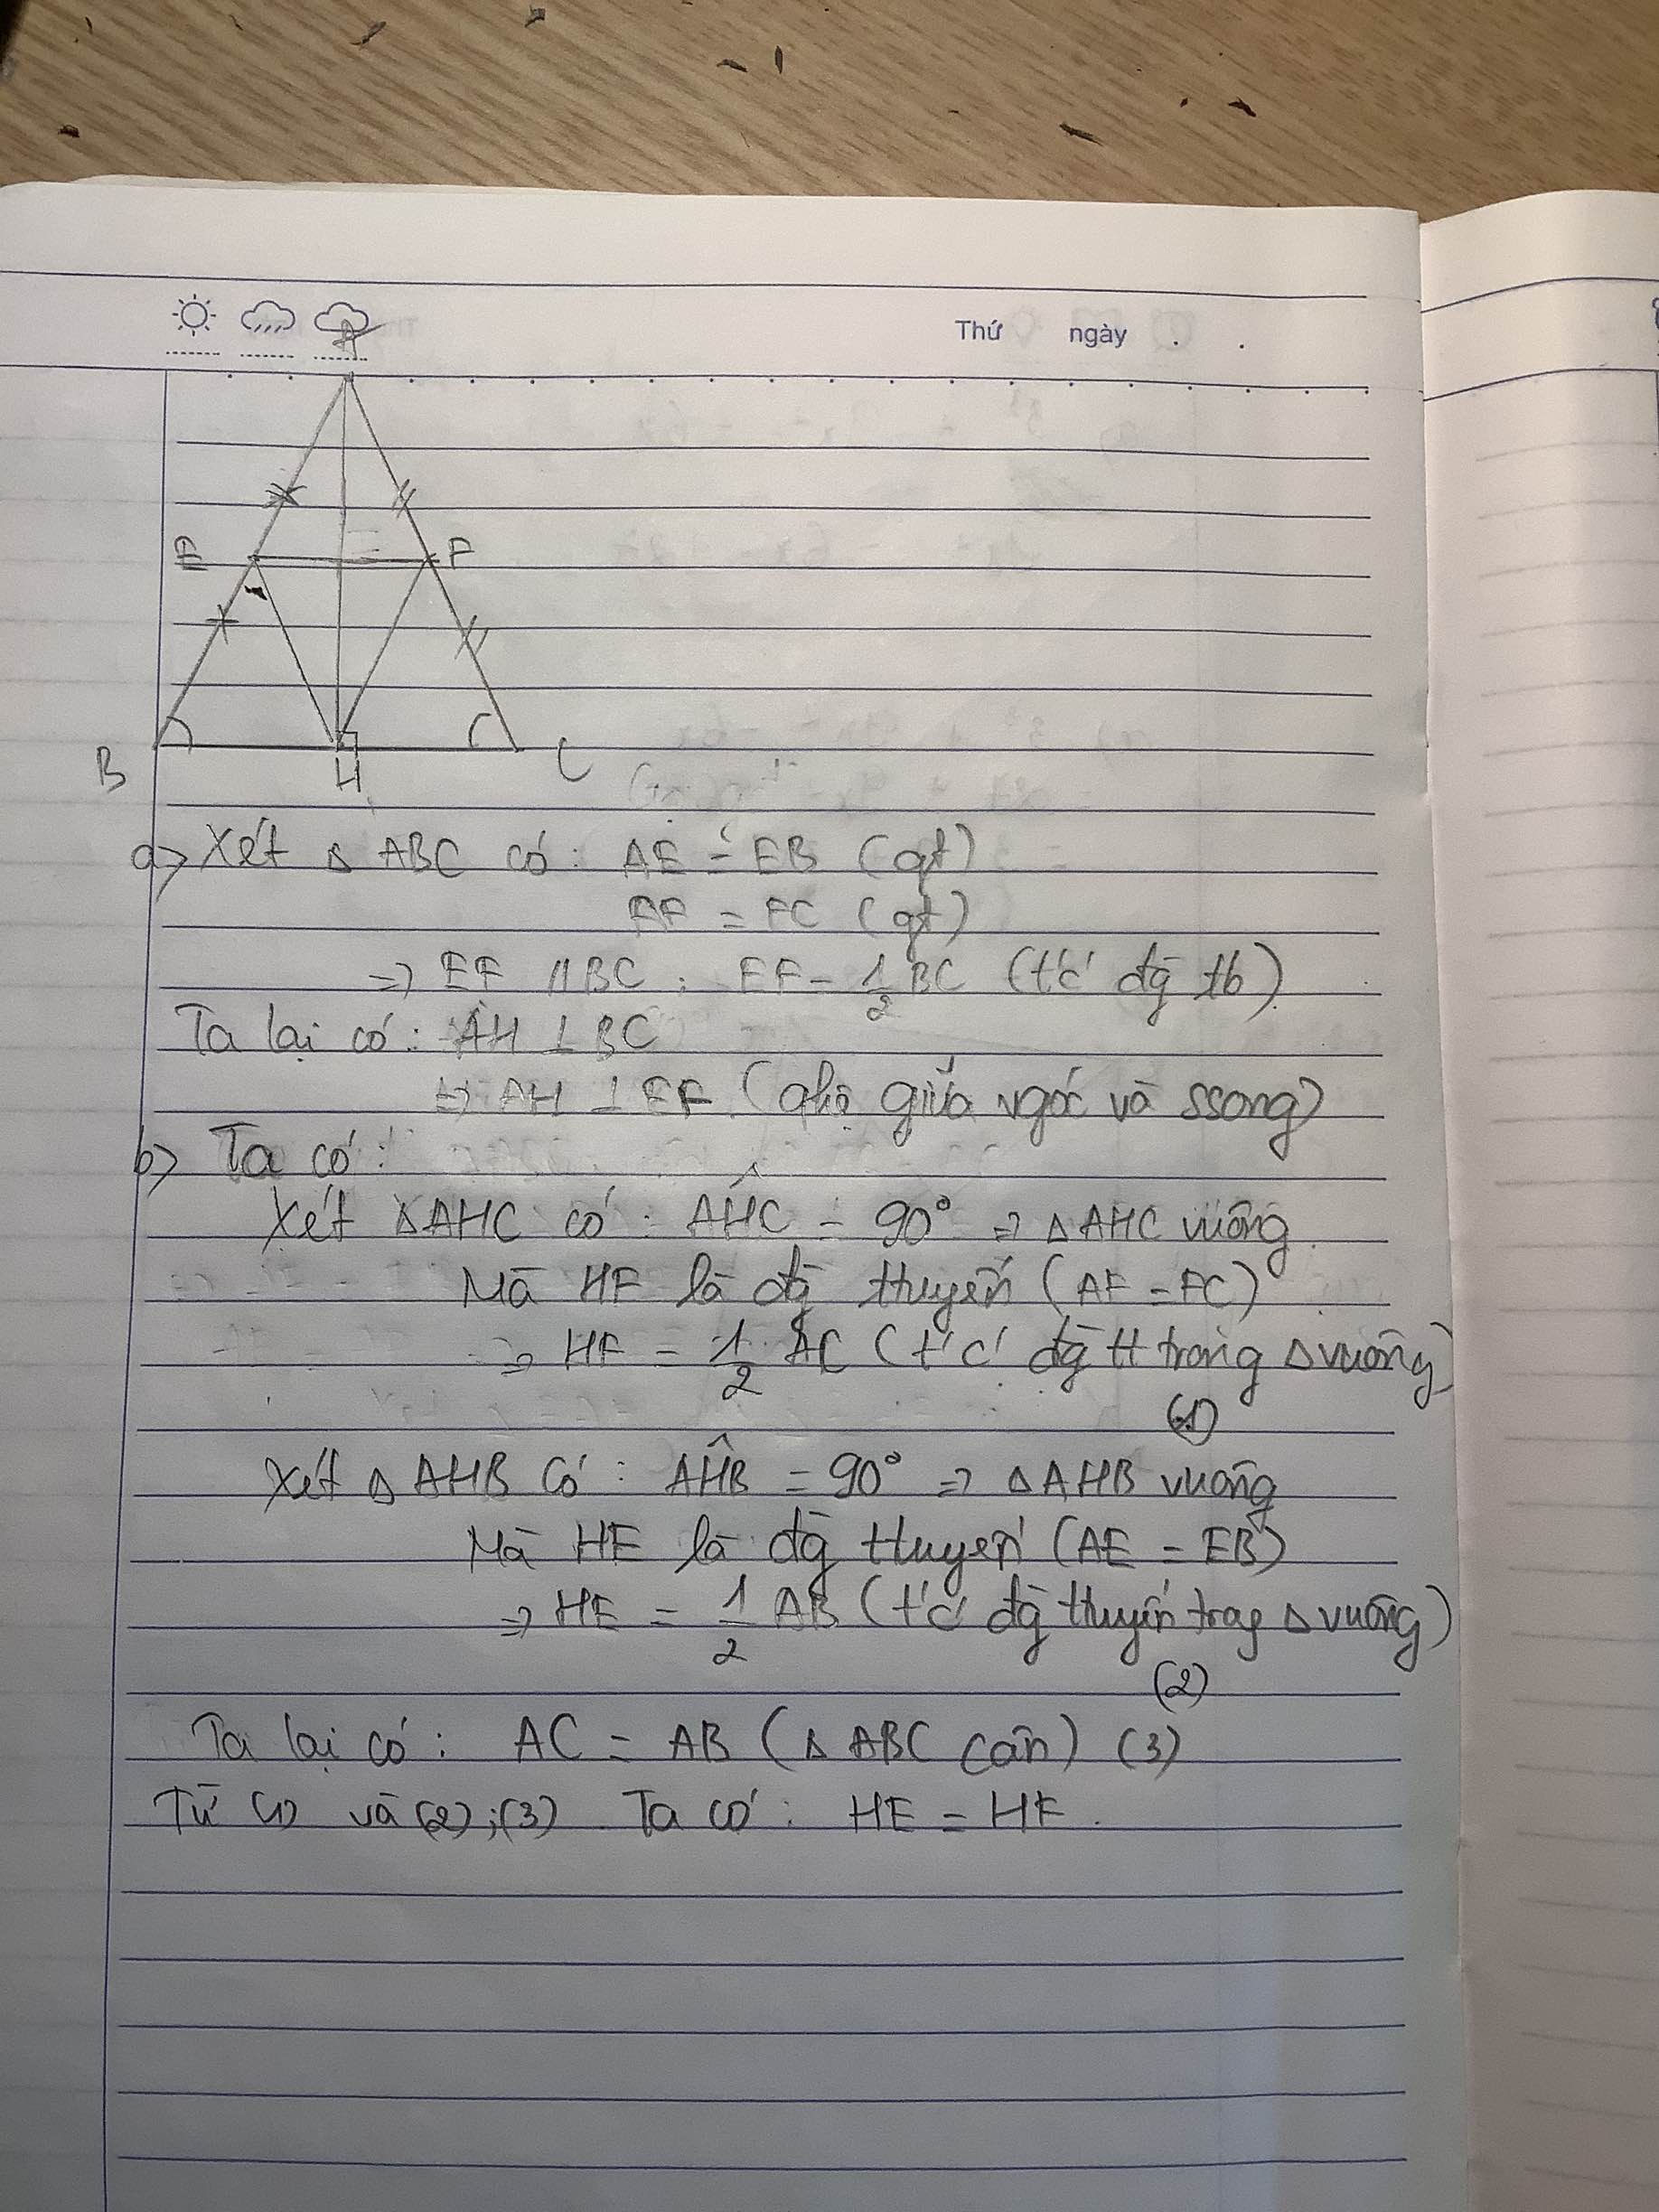 Thứ ngày . .
A
E F
B H C
a) Xét Δ ABC có: AE = EB (gt)
AF = FC (gt)
=> EF // BC ; EF = 1/2 BC (t/c đg tb)
Ta lại có: AH ⊥ BC
=> AH ⊥ EF (qhệ giữa vgóc và ssong)
b) Ta có:
Xét Δ AHC có: AĤC = 90° => Δ AHC vuông
Mà HF là đg ttuyến (AF = FC)
=> HF = 1/2 AC (t/c đg tt trong Δ vuông)
(1)
Xét Δ AHB có: AĤB = 90° => Δ AHB vuông
Mà HE là đg ttuyến (AE = EB)
=> HE = 1/2 AB (t/c đg ttuyến trog Δ vuông)
(2)
Ta lại có: AC = AB (Δ ABC cân) (3)
Từ (1) và (2);(3) Ta có: HE = HF.